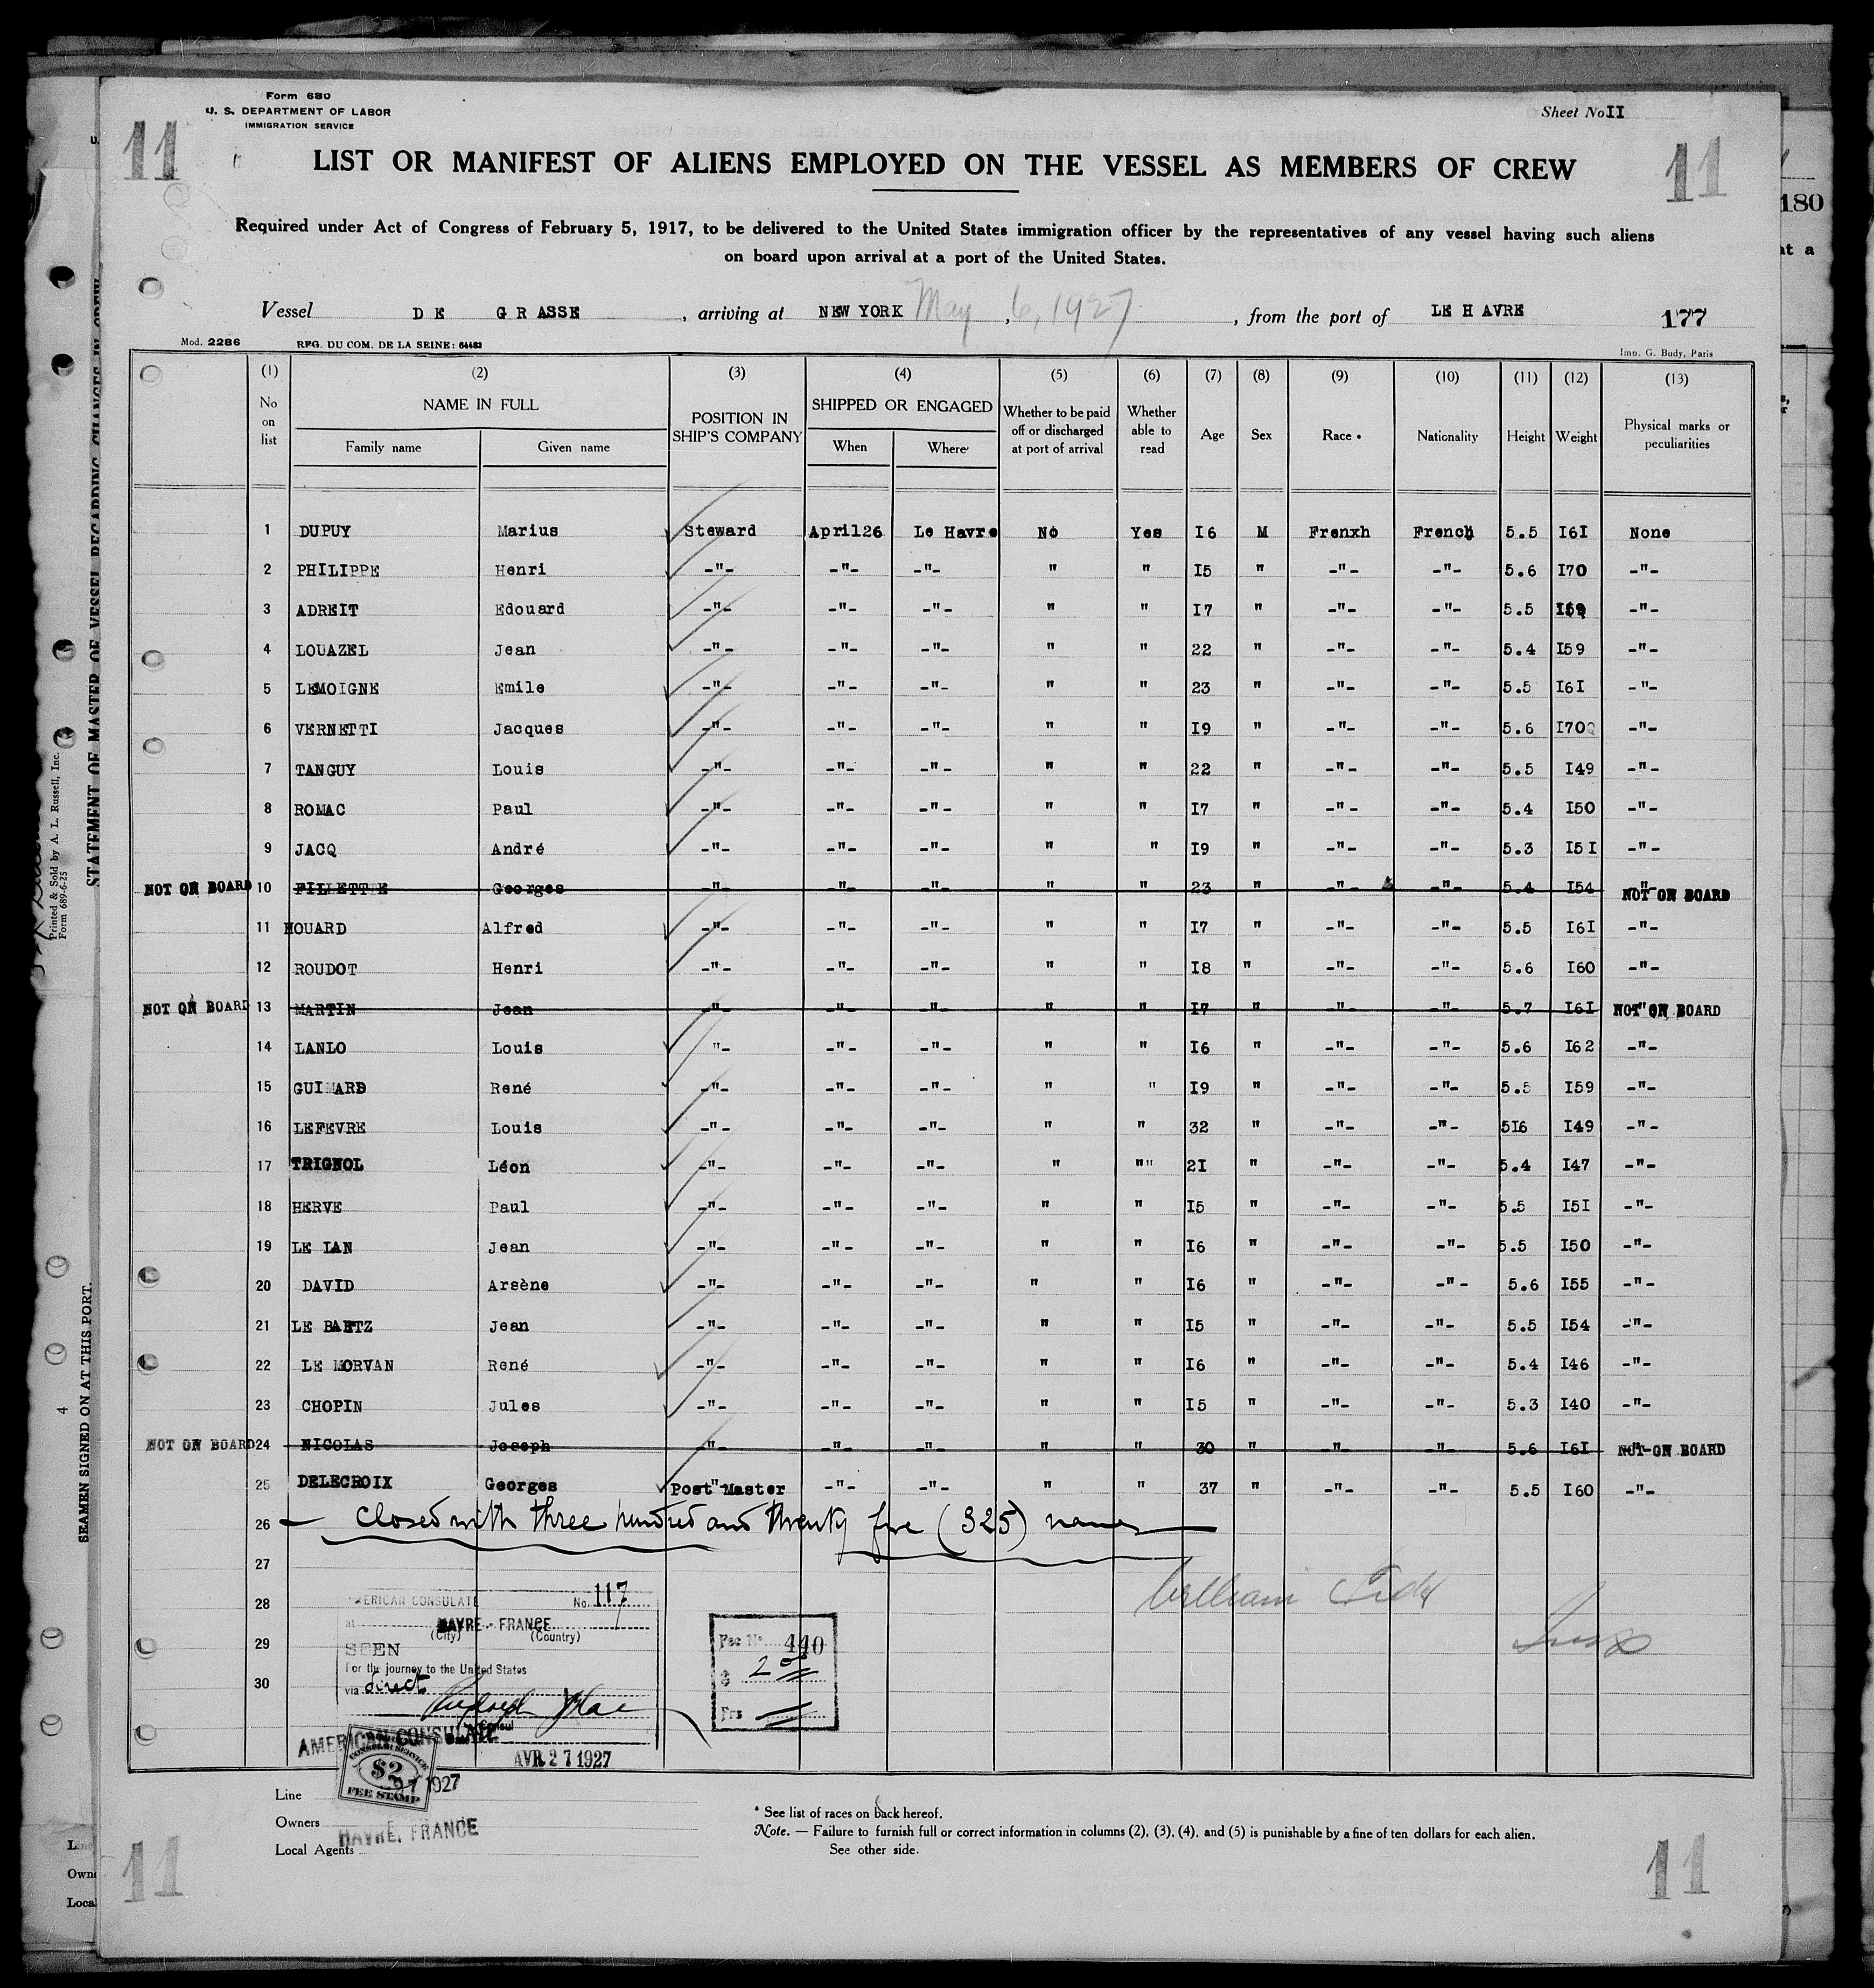 Form 680
U. S. DEPARTMENT OF LABOR
IMMIGRATION SERVICE
Sheet No II
11 11
LIST OR MANIFEST OF ALIENS EMPLOYED ON THE VESSEL AS MEMBERS OF CREW
Required under Act of Congress of February 5, 1917, to be delivered to the United States immigration officer by the representatives of any vessel having such aliens
on board upon arrival at a port of the United States.
Vessel DE GRASSE, arriving at NEW YORK May 6, 1927, from the port of LE HAVRE 177
Mod. 2286 REG. DU COM. DE LA SEINE: 64483 Imp. G. Budy, Paris
(1) (2) (3) (4) (5) (6) (7) (8) (9) (10) (11) (12) (13)
No on list NAME IN FULL Family name Given name POSITION IN SHIP'S COMPANY SHIPPED OR ENGAGED When Where Whether to be paid off or discharged at port of arrival Whether able to read Age Sex Race * Nationality Height Weight Physical marks or peculiarities
1 DUPUY Marius Steward April26 Le Havre No Yes I6 M Frenxh French 5.5 I6I None
2 PHILIPPE Henri -"- -"- -"- " " I5 " -"- -"- 5.6 I70 -"-
3 ADREIT Edouard -"- -"- -"- " " I7 " -"- -"- 5.5 -"-
4 LOUAZEL Jean -"- -"- -"- " " 22 " -"- -"- 5.4 I59 -"-
5 LEMOIGNE Emile -"- -"- -"- " " 23 " -"- -"- 5.5 I6I -"-
6 VERNETTI Jacques -"- -"- -"- " " I9 " -"- -"- 5.6 I70 -"-
7 TANGUY Louis -"- -"- -"- " " 22 " -"- -"- 5.5 I49 -"-
8 ROMAC Paul -"- -"- -"- " " I7 " -"- -"- 5.4 I50 -"-
9 JACQ André -"- -"- -"- " " I9 " -"- -"- 5.3 I5I -"-
NOT ON BOARD 10 FILLETTE Georges -"- -"- -"- " " 23 " -"- -"- 5.4 I54 -"- NOT ON BOARD
11 HOUARD Alfred -"- -"- -"- " " I7 " -"- -"- 5.5 I6I -"-
12 ROUDOT Henri -"- -"- -"- " " I8 " -"- -"- 5.6 I60 -"-
NOT ON BOARD 13 MARTIN Jean -"- -"- -"- " " I7 " -"- -"- 5.7 I6I -"- NOT ON BOARD
14 LANLO Louis "- -"- -"- " " I6 " -"- -"- 5.6 I62 -"-
15 GUIMARD René -"- -"- -"- " " I9 " -"- -"- 5.5 I59 -"-
16 LEFEVRE Louis -"- -"- -"- " " 32 " -"- -"- 5I6 I49 -"-
17 TRIGNOL Léon -"- -"- -"- " "" 2I " -"- -"- 5.4 I47 -"-
18 HERVE Paul -"- -"- -"- " " I5 " -"- -"- 5.5 I5I -"-
19 LE IAN Jean -"- -"- -"- " " I6 " -"- -"- 5.5 I50 -"-
20 DAVID Arsène -"- -"- -"- " " I6 " -"- -"- 5.6 I55 -"-
21 LE BAETZ Jean -"- -"- -"- " " I5 " -"- -"- 5.5 I54 -"-
22 LE MORVAN René -"- -"- -"- " " I6 " -"- -"- 5.4 I46 -"-
23 CHOPIN Jules -"- -"- -"- " " I5 " -"- -"- 5.3 I40 -"-
NOT ON BOARD 24 NICOLAS Joseph -"- -"- -"- " " 30 " -"- -"- 5.6 I6I -"- NOT ON BOARD
25 DELECROIX Georges Post"Master -"- -"- " " 37 " -"- -"- 5.5 I60 -"-
26 — Closed with three hundred and twenty five (325) names —
27
28
29
30
AMERICAN CONSULATE No. 117
at HAVRE - FRANCE
(City) (Country)
SEEN
For the journey to the United States
via direct
Consul
AMERICAN CONSULATE
AVR 27 1927
Fee No. 440
$ 2
Frs
William
CONSULAR SERVICE
$2
FEE STAMP
27 1927
HAVRE, FRANCE
Line
Owners
Local Agents
* See list of races on back hereof.
Note. — Failure to furnish full or correct information in columns (2), (3), (4), and (5) is punishable by a fine of ten dollars for each alien.
See other side.
11 11
STATEMENT OF MASTER OF VESSEL REGARDING CHANGES IN CREW
Printed & Sold by A. L. Russell, Inc.
Form 689-6-25
SEAMEN SIGNED ON AT THIS PORT.
4
180
at a
Line
Owne
Local